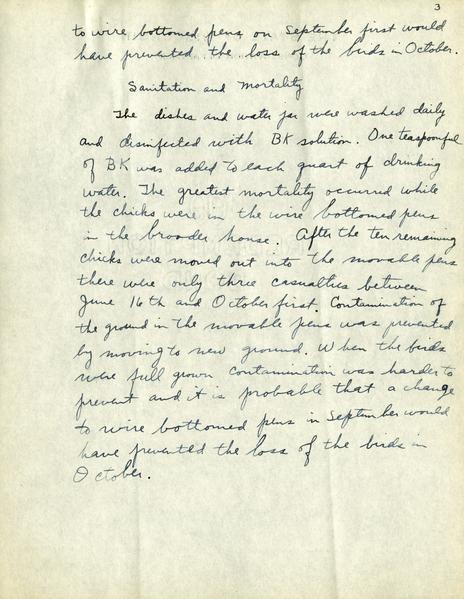 3
to wire bottomed pens on September first would
have prevented the loss of the birds in October.
Sanitation and Mortality
The dishes and water jar were washed daily
and disinfected with BK solution. One teaspoonful
of BK was added to each quart of drinking
water. The greatest mortality occurred while
the chicks were in the wire bottomed pens
in the brooder house. After the ten remaining
chicks were moved out into the movable pens
there were only three casualties between
June 16th and October first. Contamination of
the ground in the movable pens was prevented
by moving to new ground. When the birds
were full grown contamination was harder to
prevent and it is probable that a change
to wire bottomed pens in September would
have prevented the loss of the birds in
October.